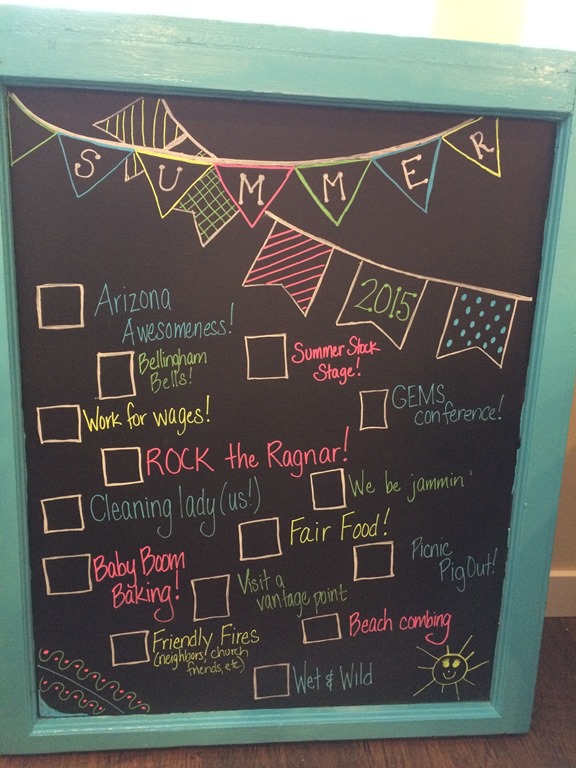 SUMMER
2015
Arizona
Awesomeness!
Bellingham
Bells!
Summer Stock
Stage!
Work for wages!
GEMS
conference!
ROCK the Ragnar!
We be jammin'
Cleaning lady (us!)
Fair Food!
Baby Boom
Baking!
Picnic
Pig Out!
Visit a
vantage point
Friendly Fires
(neighbors, church
friends, etc)
Beach combing
Wet & Wild